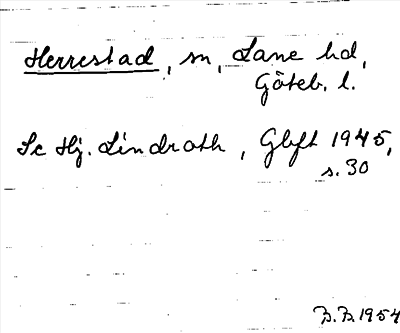 Herrestad, sn, Lane hd,
Göteb. l.
Se Hj. Lindroth, Gbft 1945,
s. 30
B.B. 1954